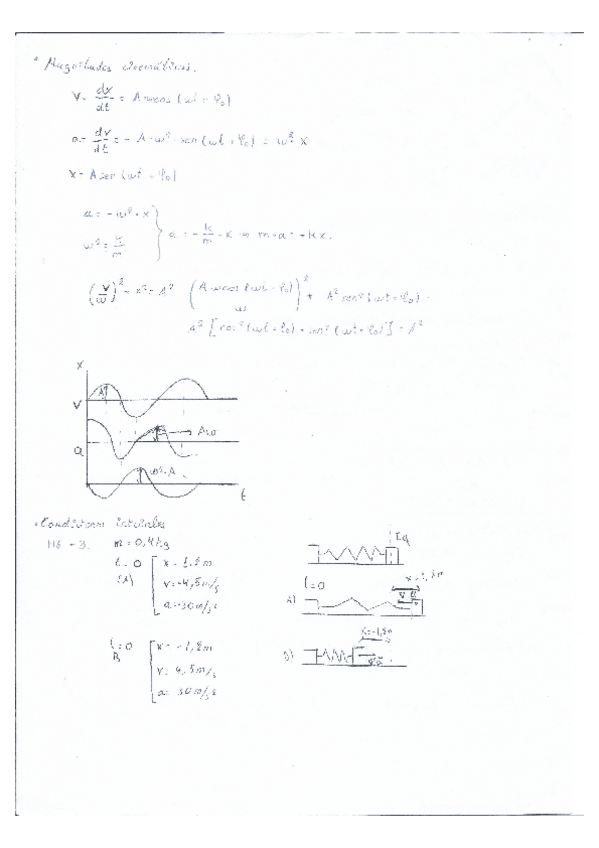 * Magnitudes cinemáticas.
V = dx/dt = A w cos (wt + φ₀)
a = dv/dt = - A · w² · sen (wt + φ₀) = w² · x
x = A sen (wt + φ₀)
a = - w² · x
w² = k/m
a = - k/m · x ⇒ m · a = - k x.
(v/w)² + x² = A²
(A w cos (wt + φ₀) / w)² + A² sen² (wt + φ₀) =
A² [cos² (wt + φ₀) + sen² (wt + φ₀)] = A²
x
A
v
Aω
a
w² · A
t
• Condiciones iniciales
116 - 3.
m = 0,4 kg
t = 0
(A)
x = 1,8 m
v = -4,5 m/s
a = -30 m/s²
t = 0
B
x = -1,8 m
v = 4,5 m/s
a = 30 m/s²
Eq
t = 0
A)
v
a
B)
x = -1,8 m